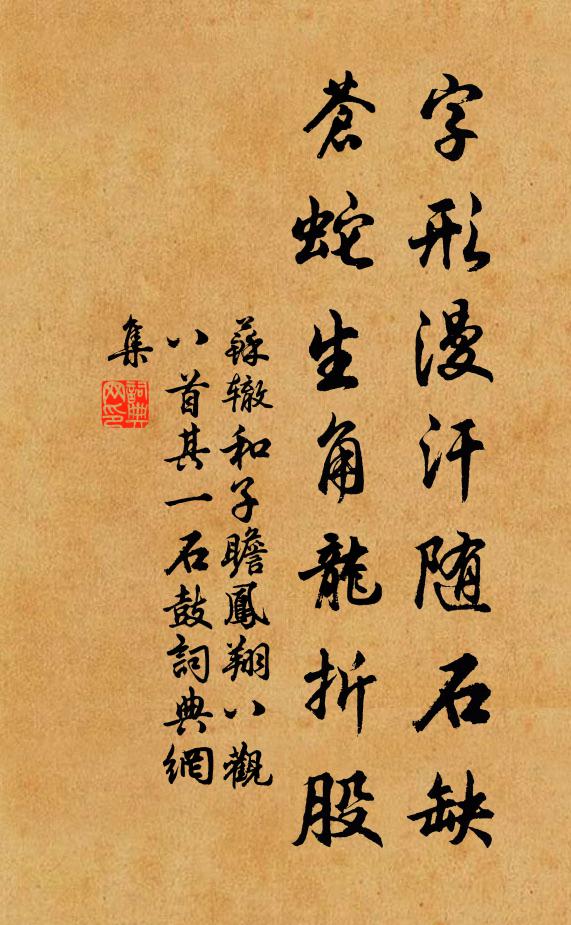 字形漫汗随石缺
蒼蛇生角龍折股
蘇辙和子瞻鳳翔八觀
八首其一石鼓詞典網
集
詞典
网印